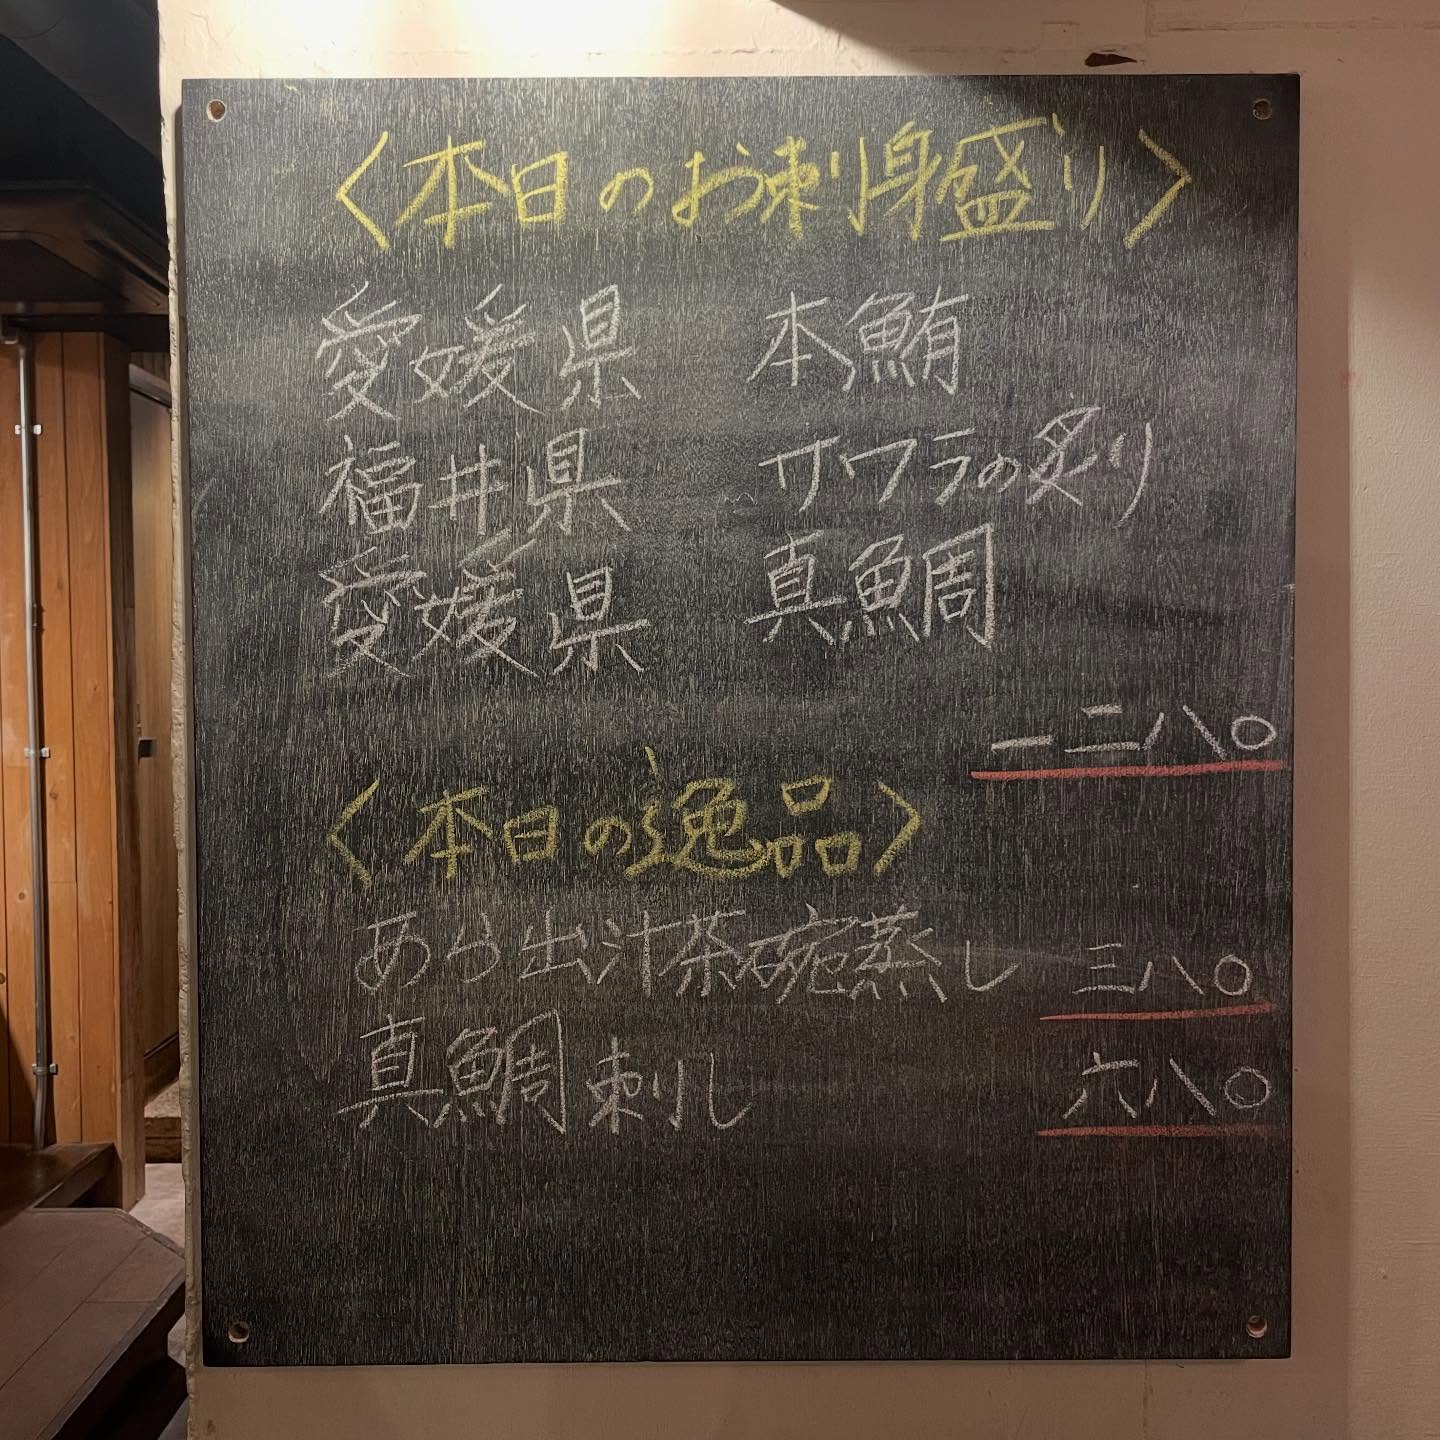 〈本日のお刺身盛り〉
愛媛県 本鮪
福井県 サワラの炙り
愛媛県 真鯛
一二八〇
〈本日の逸品〉
あら出汁茶碗蒸し 三八〇
真鯛刺し 六八〇